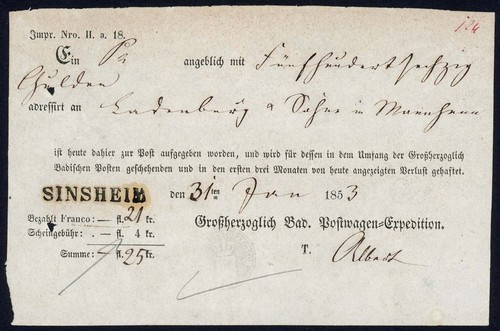 Impr. Nro. II. a. 18.
124
Ein Pa angeblich mit Fünfhundertsechzig
Gulden
adressirt an Ladenburg & Söhne in Mannheim
ist heute dahier zur Post aufgegeben worden, und wird für dessen in dem Umfang der Großherzoglich
Badischen Posten geschehenden und in den ersten drei Monaten von heute angezeigten Verlust gehaftet.
SINSHEIM den 31ten Jan 1853
Bezahlt Franco: — fl. 21 kr.
Großherzoglich Bad. Postwagen-Expedition.
Scheingebühr: . — fl. 4 kr.
Summe: — fl. 25 kr.
T. Albert